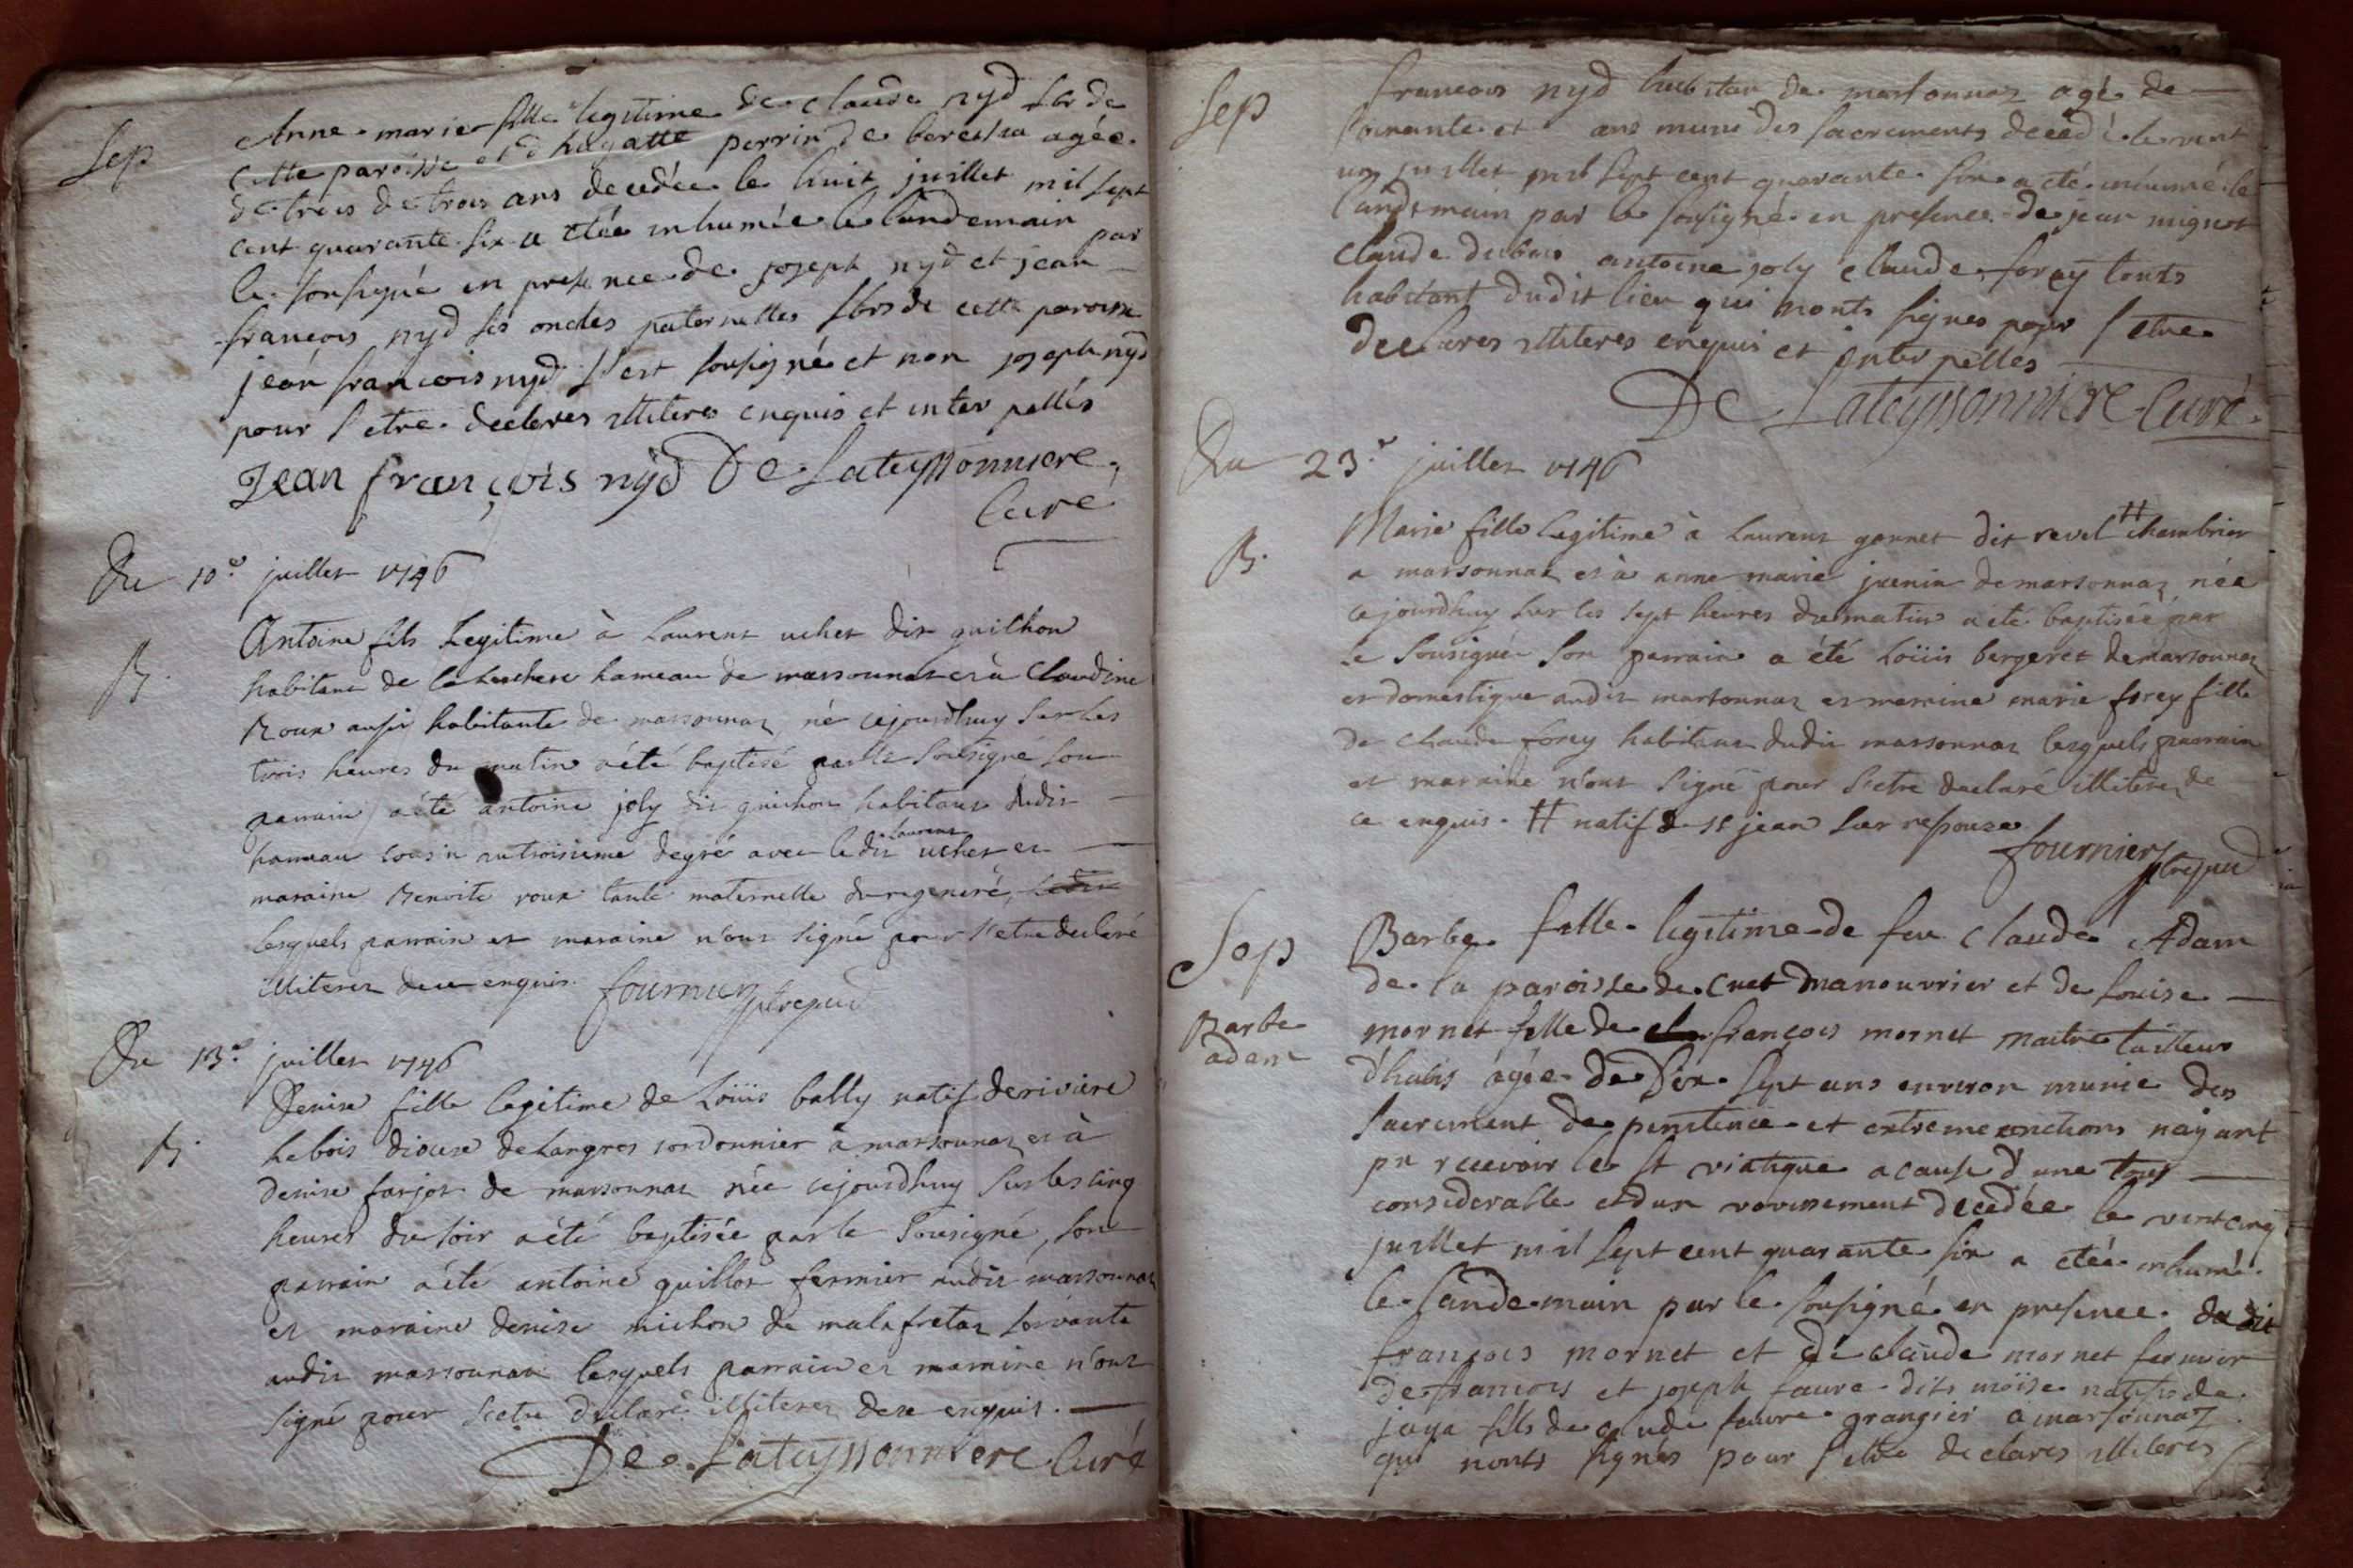 Sep
Anne marie fille legitime de claude nyd de
cette paroisse et d perrin de age
de trois de trois ans decedée le huit juillet mil sept
cent quarante six a etée inhumée le landemain par
le sousigné en presence de joseph nyd et jean
françois nyd ses oncles paternelles de cette paroisse
jean françois nyd s'est sousigné et non joseph nyd
pour s'etre declares illiteres enquis et interpellés
Jean françois nyd De Lateyssonniere
Curé
Du 10e juillet 1746
B.
Antoine fils Legitime à Laurent uchet dit guichon
habitant de hameau de marsonnas et à Claudine
Roux aussi habitante de marsonnaz né cejourdhuy sur les
trois heures du matin a été baptisé par le sousigné son
parrain a été antoine joly dit guichon habitant dudit
hameau cousin au troisieme degré avec ledit Laurent uchet et
maraine Benoite roux tante maternelle du regeneré,
lesquels parrain et maraine n'ont signé pour s'etre declaré
illiteres de ce enquis. fournier
Du 13e juillet 1746
B.
Denise fille legitime de Loüis bally natif de riviere
le bois diocese de Langres cordonnier à marsonnaz et à
denise farjot de marsonnaz née cejourdhuy sur les cinq
heures du soir a été baptisée par le sousigné, son
parrain a été antoine guillot fermier audit marsonnaz
et maraine denise michon de malafretaz servante
audit marsonnaz lesquels parrain et maraine n'ont
signé pour s'etre declaré illiteres de ce enquis.
De Lateyssonniere Curé
Sep
francois nyd habitan de marsonnaz agé de
et ans muni des sacrements decedé le vint
un juillet mil sept cent quarante six a été inhumé le
landemain par le sousigné en presence de jean mignot
claude dubois antoine joly claude foray touts
habitant dudit lieu qui nonts signes pour s'etre
declares illiteres enquis et interpelles
De Lateyssonniere Curé
Du 23e juillet 1746
B.
Marie fille legitime à Laurent gonnet dit revel # chambrier
a marsonnaz et à anne marie juenin de marsonnaz née
cejourdhuy sur les sept heures du matin a été baptisée par
le sousigné son parrain a été Loüis bergeret de marsonnaz
et domestique audit marsonnaz et marraine marie forey fille
de claude forey habitant dudit marsonnaz lesquels parrain
et maraine n'ont signé pour s'etre declaré illiteres de
ce enquis. # natif de st jean sur resouze
fournier
Sep
Barbe
adam
Barbe fille legitime de feu Claude Adam
de la paroisse de Cuet manouvrier et de Louise
mornet fille de françois mornet maitre tailleur
d'habis agée de dix sept ans environ munie des
sacrement de penitence et extreme onctions nayant
pu recevoir le st viatique a cause d'une toux
considerable et d'un vomissement decedée le vint cinq
juillet mil sept cent quarante six a etéé inhumé
le landemain par le sousigné en presence du dit
françois mornet et de claude mornet fermier
de francois et joseph faure dits moïse natifs de
jaya fils de claude faure grangier a marsonnaz
qui nonts signés pour s'etre declarés illiteres